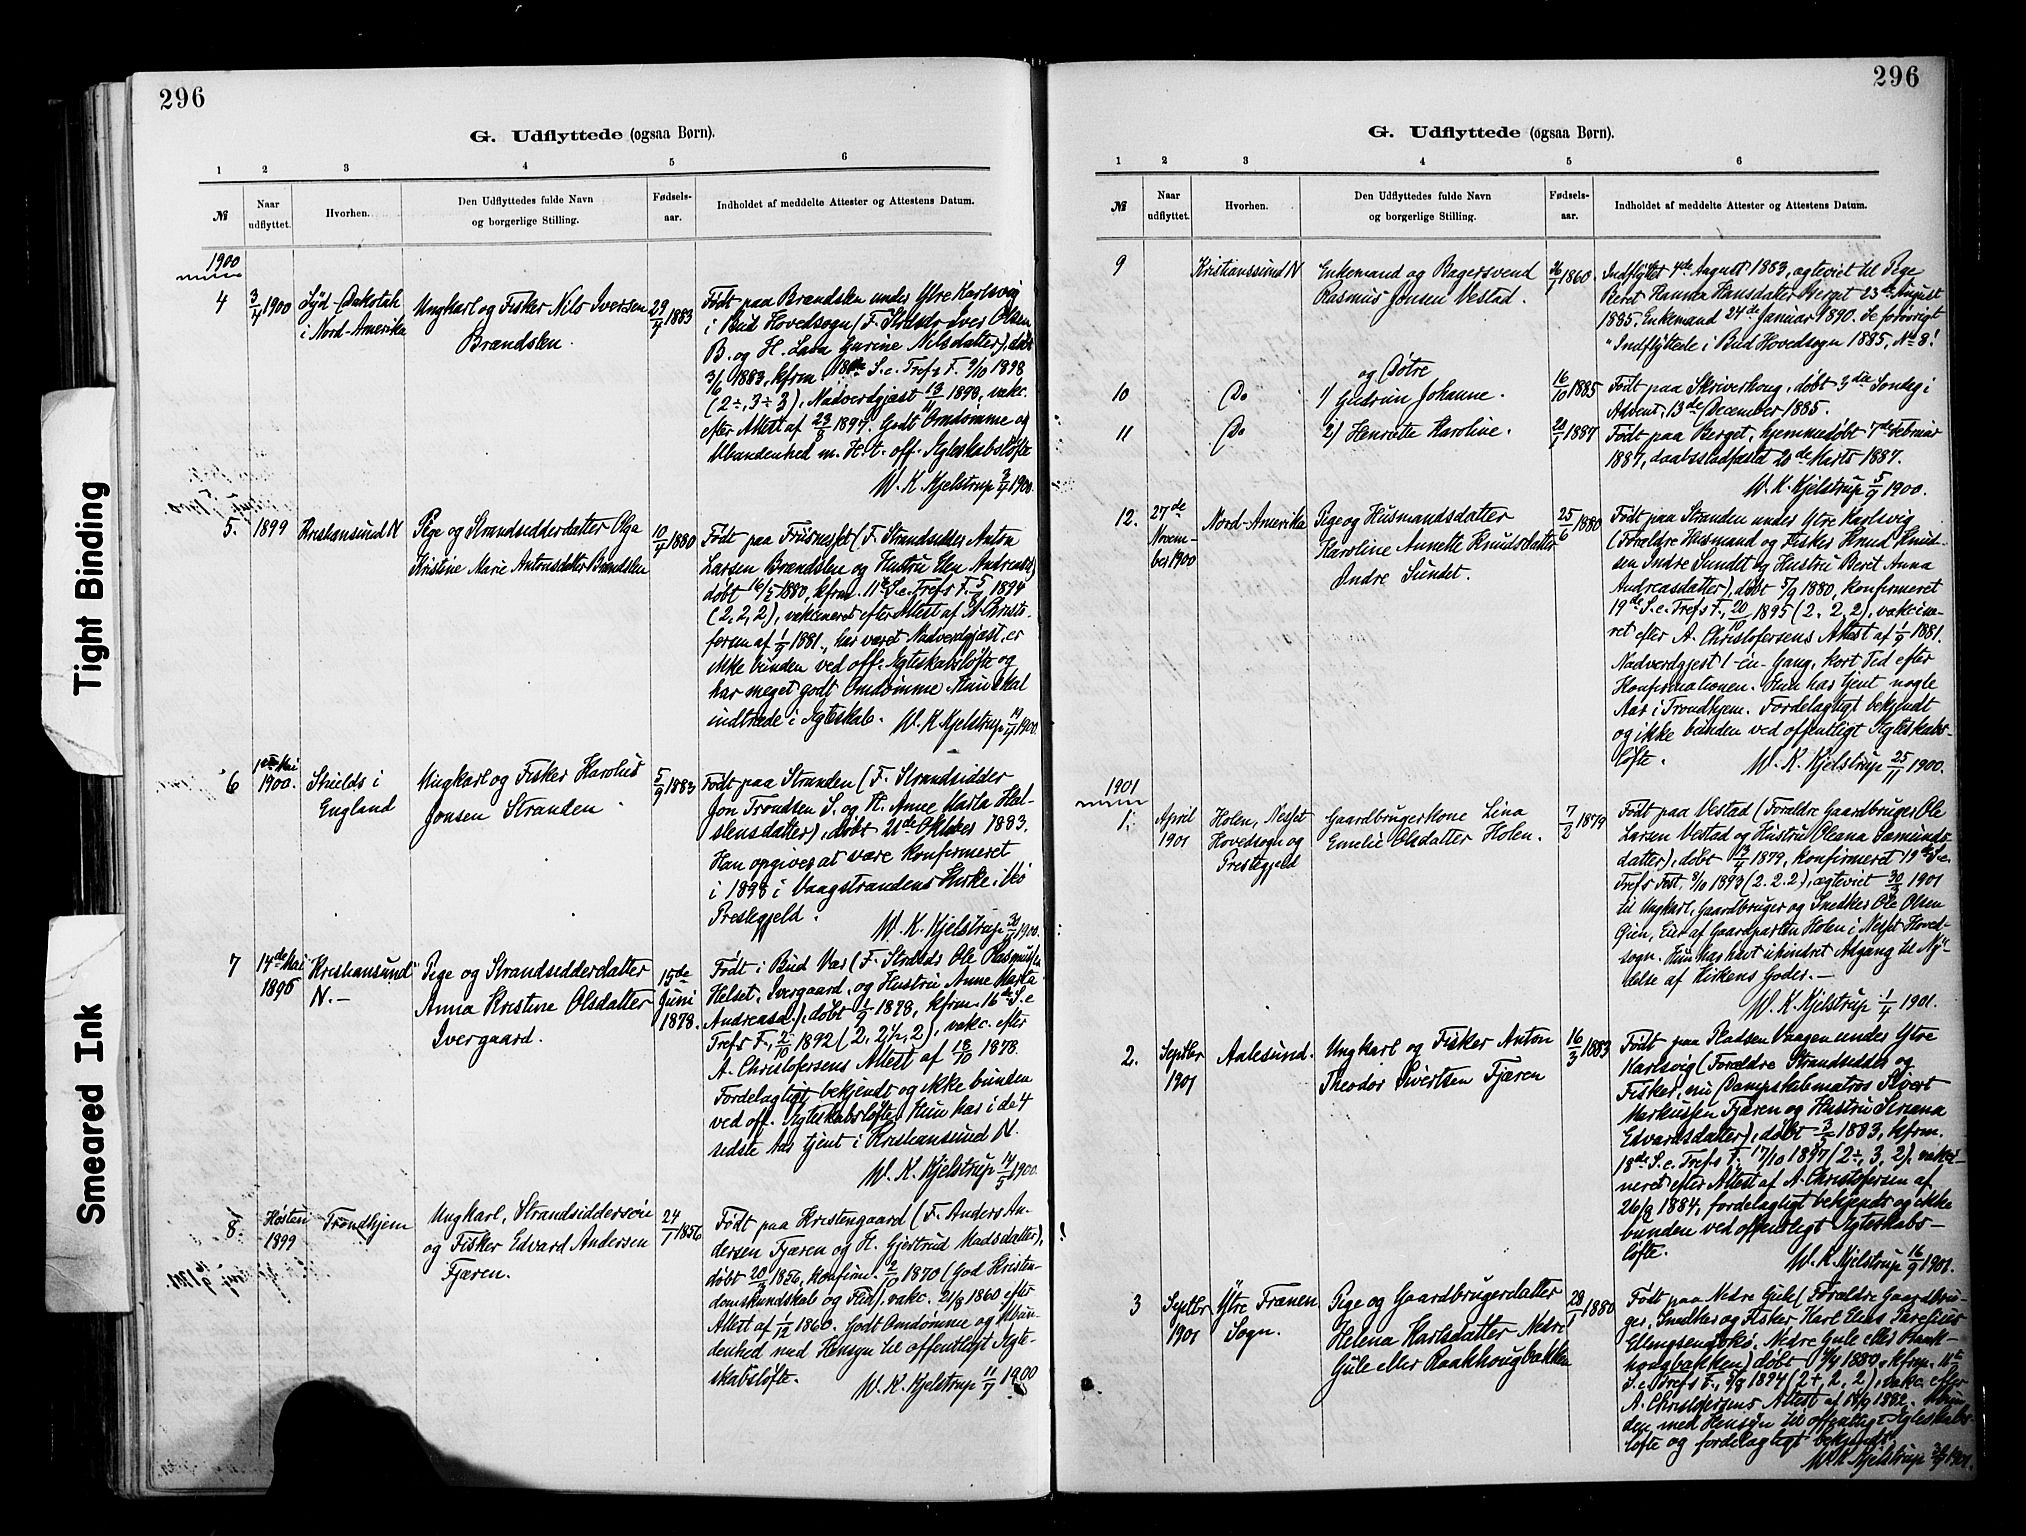 296
G. Udflyttede (ogsaa Børn).
1 2 3 4 5 6
№ Naar udflyttet. Hvorhen. Den Udflyttedes fulde Navn og borgerlige Stilling. Fødselsaar. Indholdet af meddelte Attester og Attestens Datum.
1900
4 3/4 1900 Syd-Dakotah i Nord-Amerika
Ungkarl og Fisker Nils Iversen
Brændslen.
29/4 1883
Født paa Brændslen under Ytre Karlsvig
i Bud Hovedsogn (F. Strds. Iver Olsen
B. og H. Lava Gurine Nilsdatter), døbt
3/6 1883, kfrm. 18de S. e. Tref. F. 9/10 1898
(2÷, 3÷3), Nadverdgjæst 13/11 1898, vakc.
efter Attest af 23/8 1897. Godt Omdømme og
Ubundenhed m. H. t. off. Ægteskabsløfte
W. K. Kjelstrup 3/4 1900.
5. 1899 Kristiansund N
Pige og Strandsidderdatter Olga
Kristine Marie Antonsdatter Brændslen
10/4 1880
Født paa Frusneset (F. Strandsidder Anton
Larsen Brændslen og Hustru Elen Andreasd)
døbt 16/5 1880, kfrm. 11te S. e. Tref. F. 5/8 1894
(2, 2, 2), vakcineret efter Attest af A. Christo-
fersen af 1/9 1881, har været Nadverdgjæst, er
ikke bunden ved off. Ægteskabsløfte og
har meget godt Omdømme. Hun skal
indtræde i Ægteskab. W. K. Kjelstrup 19/4 1900.
6 1ste Mai 1900. Shields i England
Ungkarl og Fisker Karolius
Jonsen Stranden.
5/9 1883
Født paa Stranden (F. Strandsidder
Jon Trondsen S. og H. Anne Marta Hal-
stensdatter), døbt 21de Oktober 1883.
Han opgives at være konfirmeret
i 1898 i Vaagstrandens Kirke i Veø
Prestegjeld.
W. K. Kjelstrup 30/4 1900.
7 14de Mai 1896 Kristiansund N.-
Pige og Strandsidderdatter
Anna Kristine Olsdatter
Ivergaard.
15de Juni 1878.
Født i Bud Vær (F. Strands Ole Rasmussen
Helset, Ivergaard, og Hustru Anne Marta
Andreasd.), døbt 1/9 1878, kfrm. 16de S. e
Trefs F., 2/10 1892 (2, 2½, 2), vakc. efter
A. Christofersens Attest af 18/10 1878.
Fordelagtigt bekjendt og ikke bunden
ved off. Ægteskabsløfte. Hun har i de 4
sidste Aar tjent i Kristiansund N.
W. K. Kjelstrup 14/5 1900.
8. Høsten 1899 Trondhjem
Ungkarl, Strandsiddersøn
og Fisker Edvard Andersen
Fjæren.
24/7 1856
Født paa Kristengaard (F. Anders An-
dersen Fjæren og H. Gjertrud Madsdatter),
døbt 1856, konfirm. 2/10 1870 (God Kristen-
domskundskab og Flid), vakc. 21/8 1860 efter
Attest af 1/12 1860. Godt Omdømme og Ubun-
denhed med Hensyn til offentligt Ægte-
skabsløfte.
W. K. Kjelstrup 11/7 1900
296
G. Udflyttede (ogsaa Børn).
1 2 3 4 5 6
№ Naar udflyttet. Hvorhen. Den Udflyttedes fulde Navn og borgerlige Stilling. Fødselsaar. Indholdet af meddelte Attester og Attestens Datum.
9 Kristianssund N
Enkemand og Bagersvend
Rasmus Jonsen Vestad.
1860
Indflyttet 4de August 1883, ægteviet til Pige
Beret Hanna Hansdatter Berget 23de August
1885, Enkemand 24de Januar 1890. Se forøvrigt
"Indflyttede i Bud Hovedsogn 1885, No 8!
og Døtre
10 Do 1) Gudrun Johanne. 16/10 1885
Født paa Skriverhoug, døbt 3die Søndag i
Advent, 13de December 1885.
11 Do 2) Henriette Karoline. 20/1 1887
Født paa Berget, hjemmedøbt 7de Februar
1887, daabsstadfæstet 20de Marts 1887.
W. K. Kjelstrup 5/9 1900.
12. 27de November 1900 Nord-Amerika
Pige og Husmandsdatter
Karoline Annette Knudsdatter
Indre Sundet.
25/6 1880
Født paa Stranden under Ytre Karlsvig
(Forældre Husmand og Fisker Knud Knud-
sen Indre Sundet og Hustru Beret Anna
Andreasdatter), døbt 5/9 1880, konfirmeret
19de S. e. Tref. F., 20/10 1895 (2. 2, 2), vakcine-
ret efter A. Christofersens Attest af 1/9 1881.
Nadverdgjæst 1-en-Gang, kort Tid efter
Konfirmationen. Hun har tjent nogle
Aar i Trondhjem. Fordelagtigt bekjendt
og ikke bunden ved offentligt Ægteskabs-
løfte. W. K. Kjelstrup 25/11 1900.
1901
1. April 1901 Holen, Nesset Hovedsogn og Prestegjeld
Gaardbrugerkone Lina
Emelie Olsdatter Holen.
7/2 1879
Født paa Vestad (Forældre Gaardbruger Ole
Larsen Vestad og Hustru Oleana Samunds-
datter), døbt 13/4 1879, konfirmeret 19de S. e.
Trefs Fest, 8/10 1893 (2. 2. 2), ægteviet 30/3 1901
til Ungkarl, Gaardbruger og Snedker Ole Olsen
Gien, Eier af Gaardparten Holen i Nesset Hoved-
sogn. Hun har havt uhindret Adgang til Ny-
delse af Kirkens Goder.-
W. K. Kjelstrup 1/4 1901.
2. Septbr 1901 Aalesund.
Ungkarl og Fisker Anton
Theodor Sivertsen Fjæren
16/3 1883
Født paa Pladsen Vaagen under Ytre
Karlsvig (Forældre Strandsidder og
Fisker, nu Dampskibsmatros Sivert
Markussen Fjæren og Hustru Seriana
Edvardsdatter), døbt 3/5 1883, kfrm.
18de S. e. Trefs F. 17/10 1897 (2÷, 3, 2), vakci-
neret efter Attest af A. Christofersen af
26/9 1884, fordelagtigt bekjendt og ikke
bunden ved offentligt Ægteskabs-
løfte.
W. K. Kjelstrup 16/9 1901.
3 Septbr 1901 Ytre Frænen Sogn.
Pige og Gaardbrugerdatter
Helena Karlsdatter Nedre
Gule eller Raakhougbakken
28/1 1880
Født paa Nedre Gule (Forældre Gaardbru-
ger, Snedker og Fisker Karl Elias Parelius
Ellingsen Nedre Gule eller Raak-
hougbakken) døbt 1880, kfrm. 11te
S. e. Trefs F., 5/8 1894 (2+, 2, 2), vakc. efter
A. Christofersens Attest af 1882. Ubun-
den med Hensyn til offentligt Ægteskabs-
løfte og fordelagtigt bekjendt.
W. K. Kjelstrup 1901.
Tight Binding
Smeared Ink